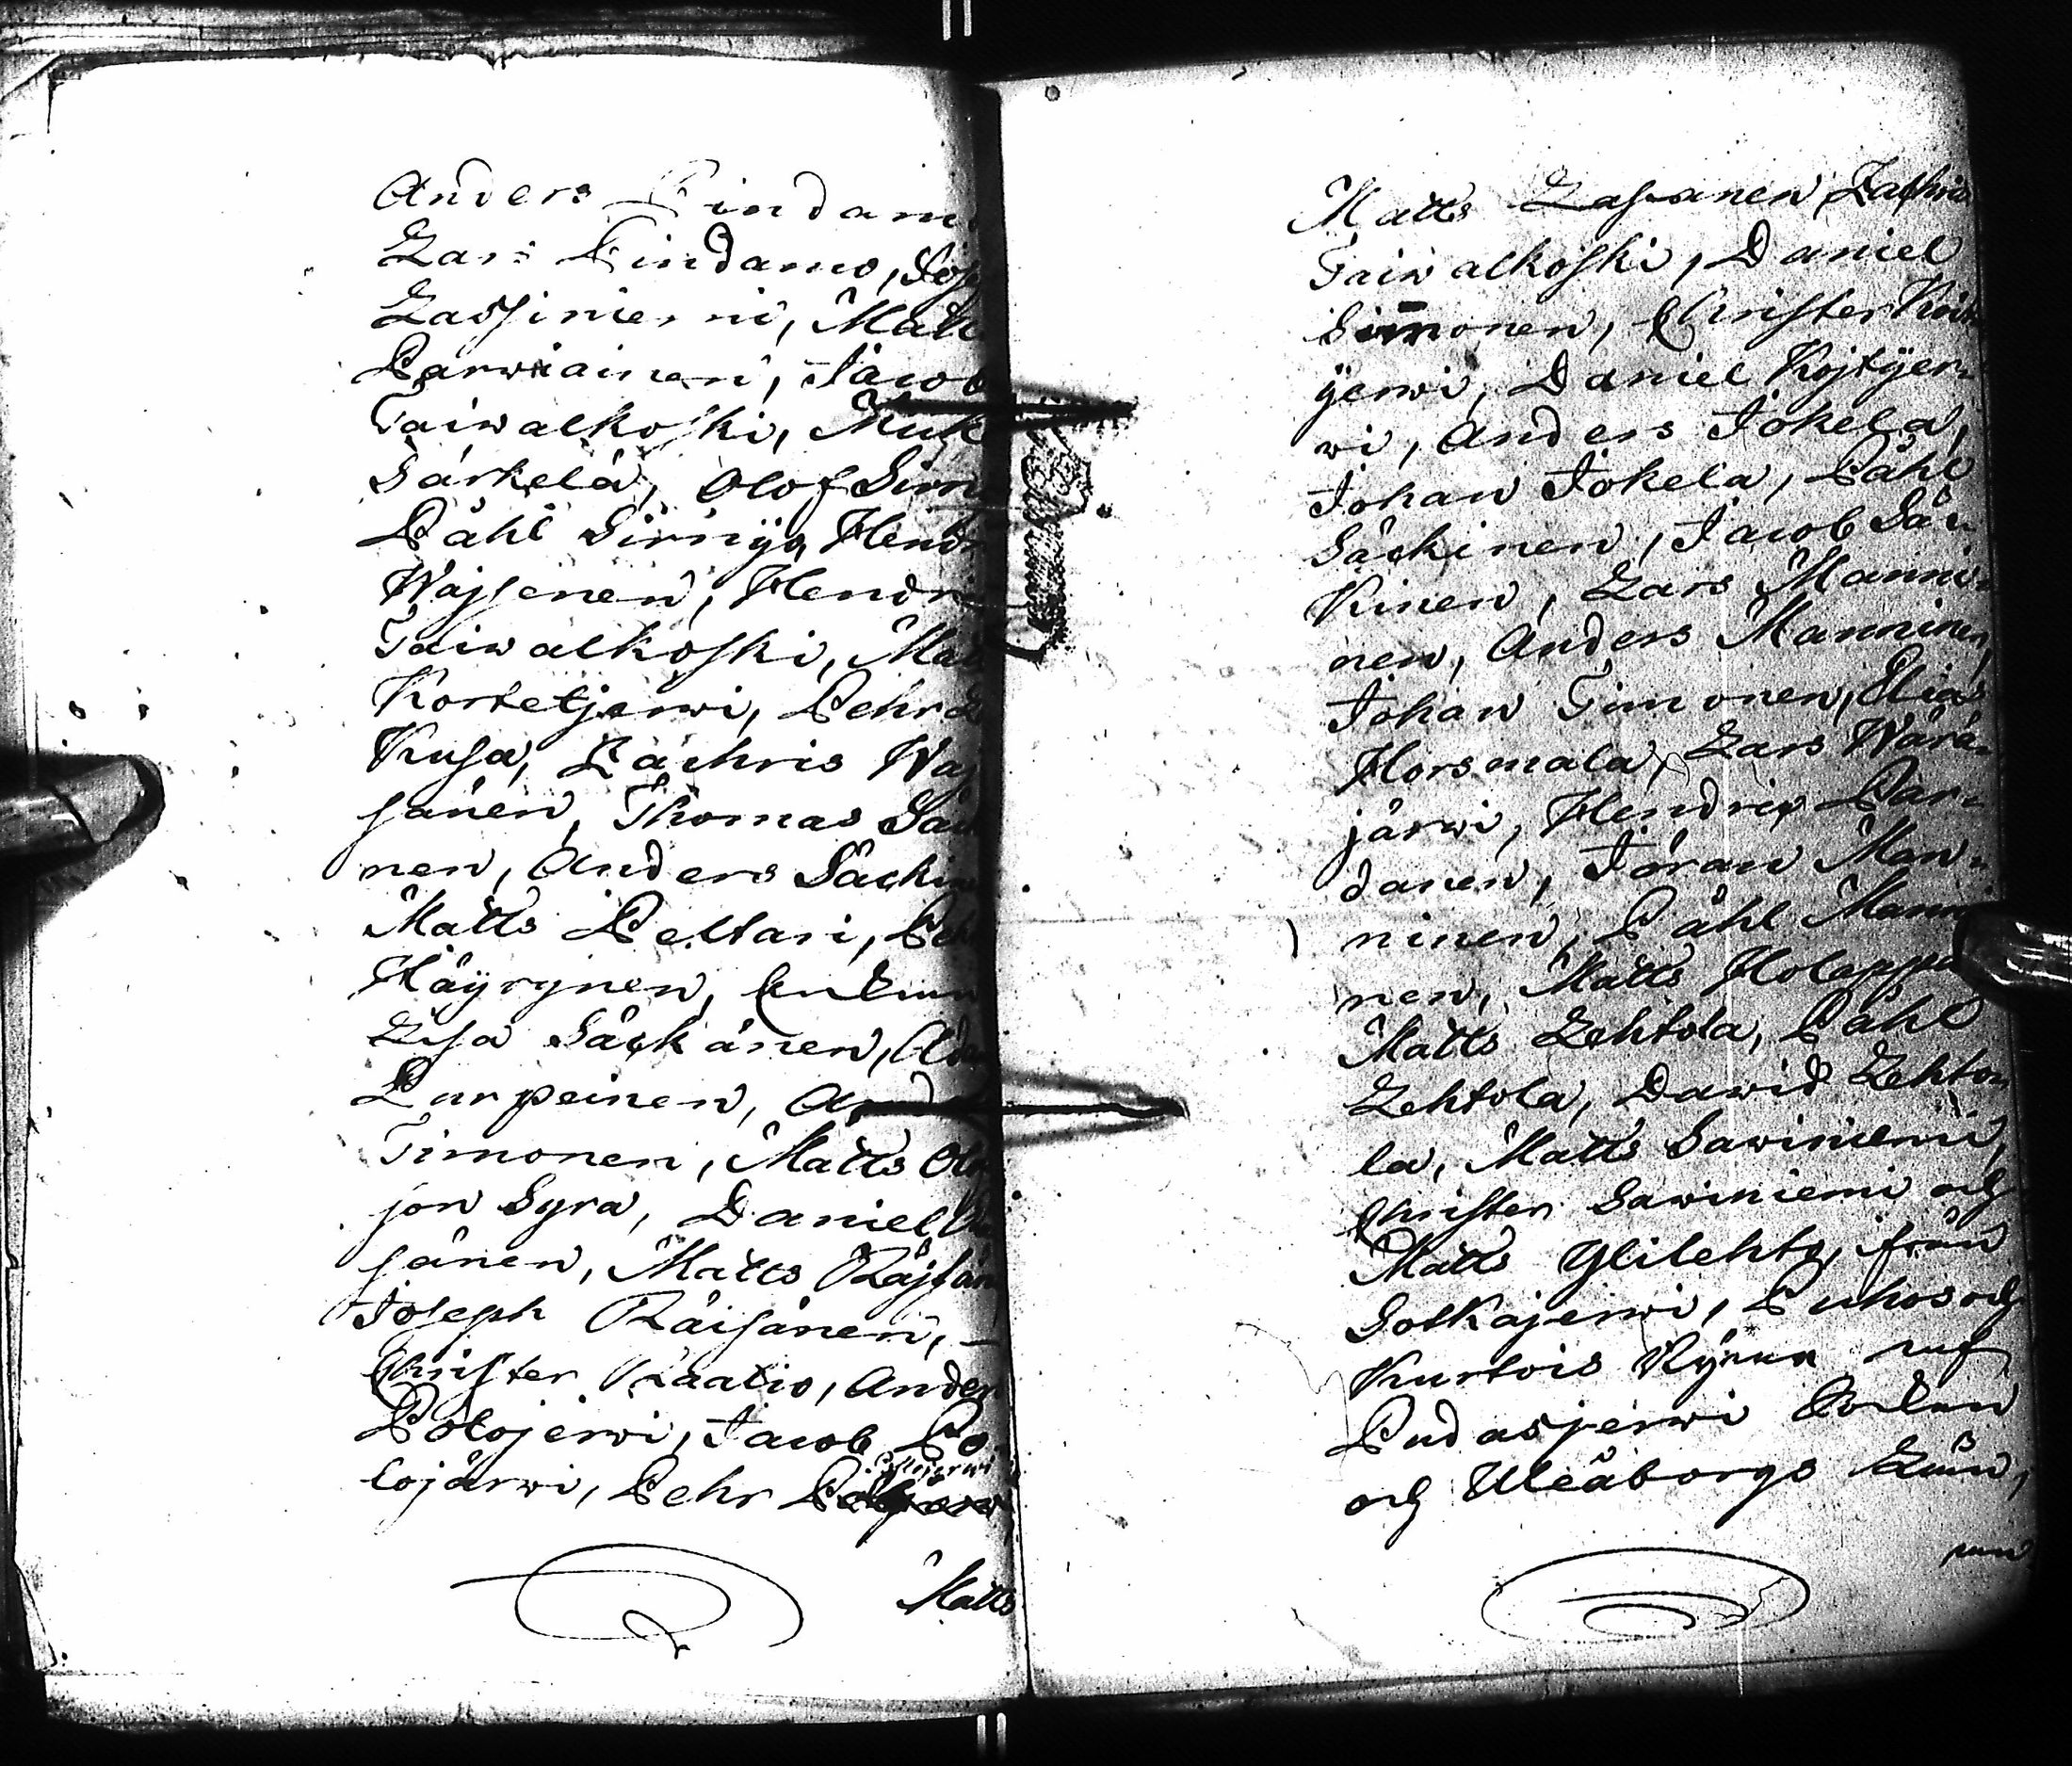 Anders Pindam
Lars Pindamo, Jos
Lassiniemi, Matts
Parwiainen, Jacob
Taiwalkoski, Mick
Särkelä, Olof Sirn
Påhl Sirniö, Hendr
Wajsenen, Hendri
Taiwalkoski, Mat
Kortetjerwi, Pehr
Kusa, Zachris Waj
sänen, Thomas Säck
nen, Anders Säckin
Matts Peltari, Peh
Häyrynen, Enkan
Lisa Säckänen, Ada
Purpeinen, And
Timonen, Matts Olo
jon Syra, Daniel
sänen, Matts Räjsän
Joseph Räisänen, –
Christer Raatio, Ander
Polojerwi, Jacob Po-
lojärwi, Pehr Pollojerwi
Matts
Matts Lassanen, Zachris
Taiwalkoski, Daniel
Simonen, Christer Koit
jerwi, Daniel Kojtjer-
wi, Anders Jokela,
Johan Jokela, Påhl
Säckinen, Jacob Säc-
kinen, Lars Manni-
nen, Anders Manninen,
Johan Timonen, Elias
Horsmala, Lars Wärä-
järwi, Hendric Par-
danen, Jöran Man-
ninen, Påhl Manni
nen, Matts Holappa
Matts Lehtola, Påhl
Lehtola, Dawid Lehto-
la, Matts Sawiniemi,
Christer Sawiniemi och
Matts Ylilehto, från
Sotkajerwi, Puhos och
Kurtois Byar uti
Pudasjerwi Sockn
och Uleåborgs Län,